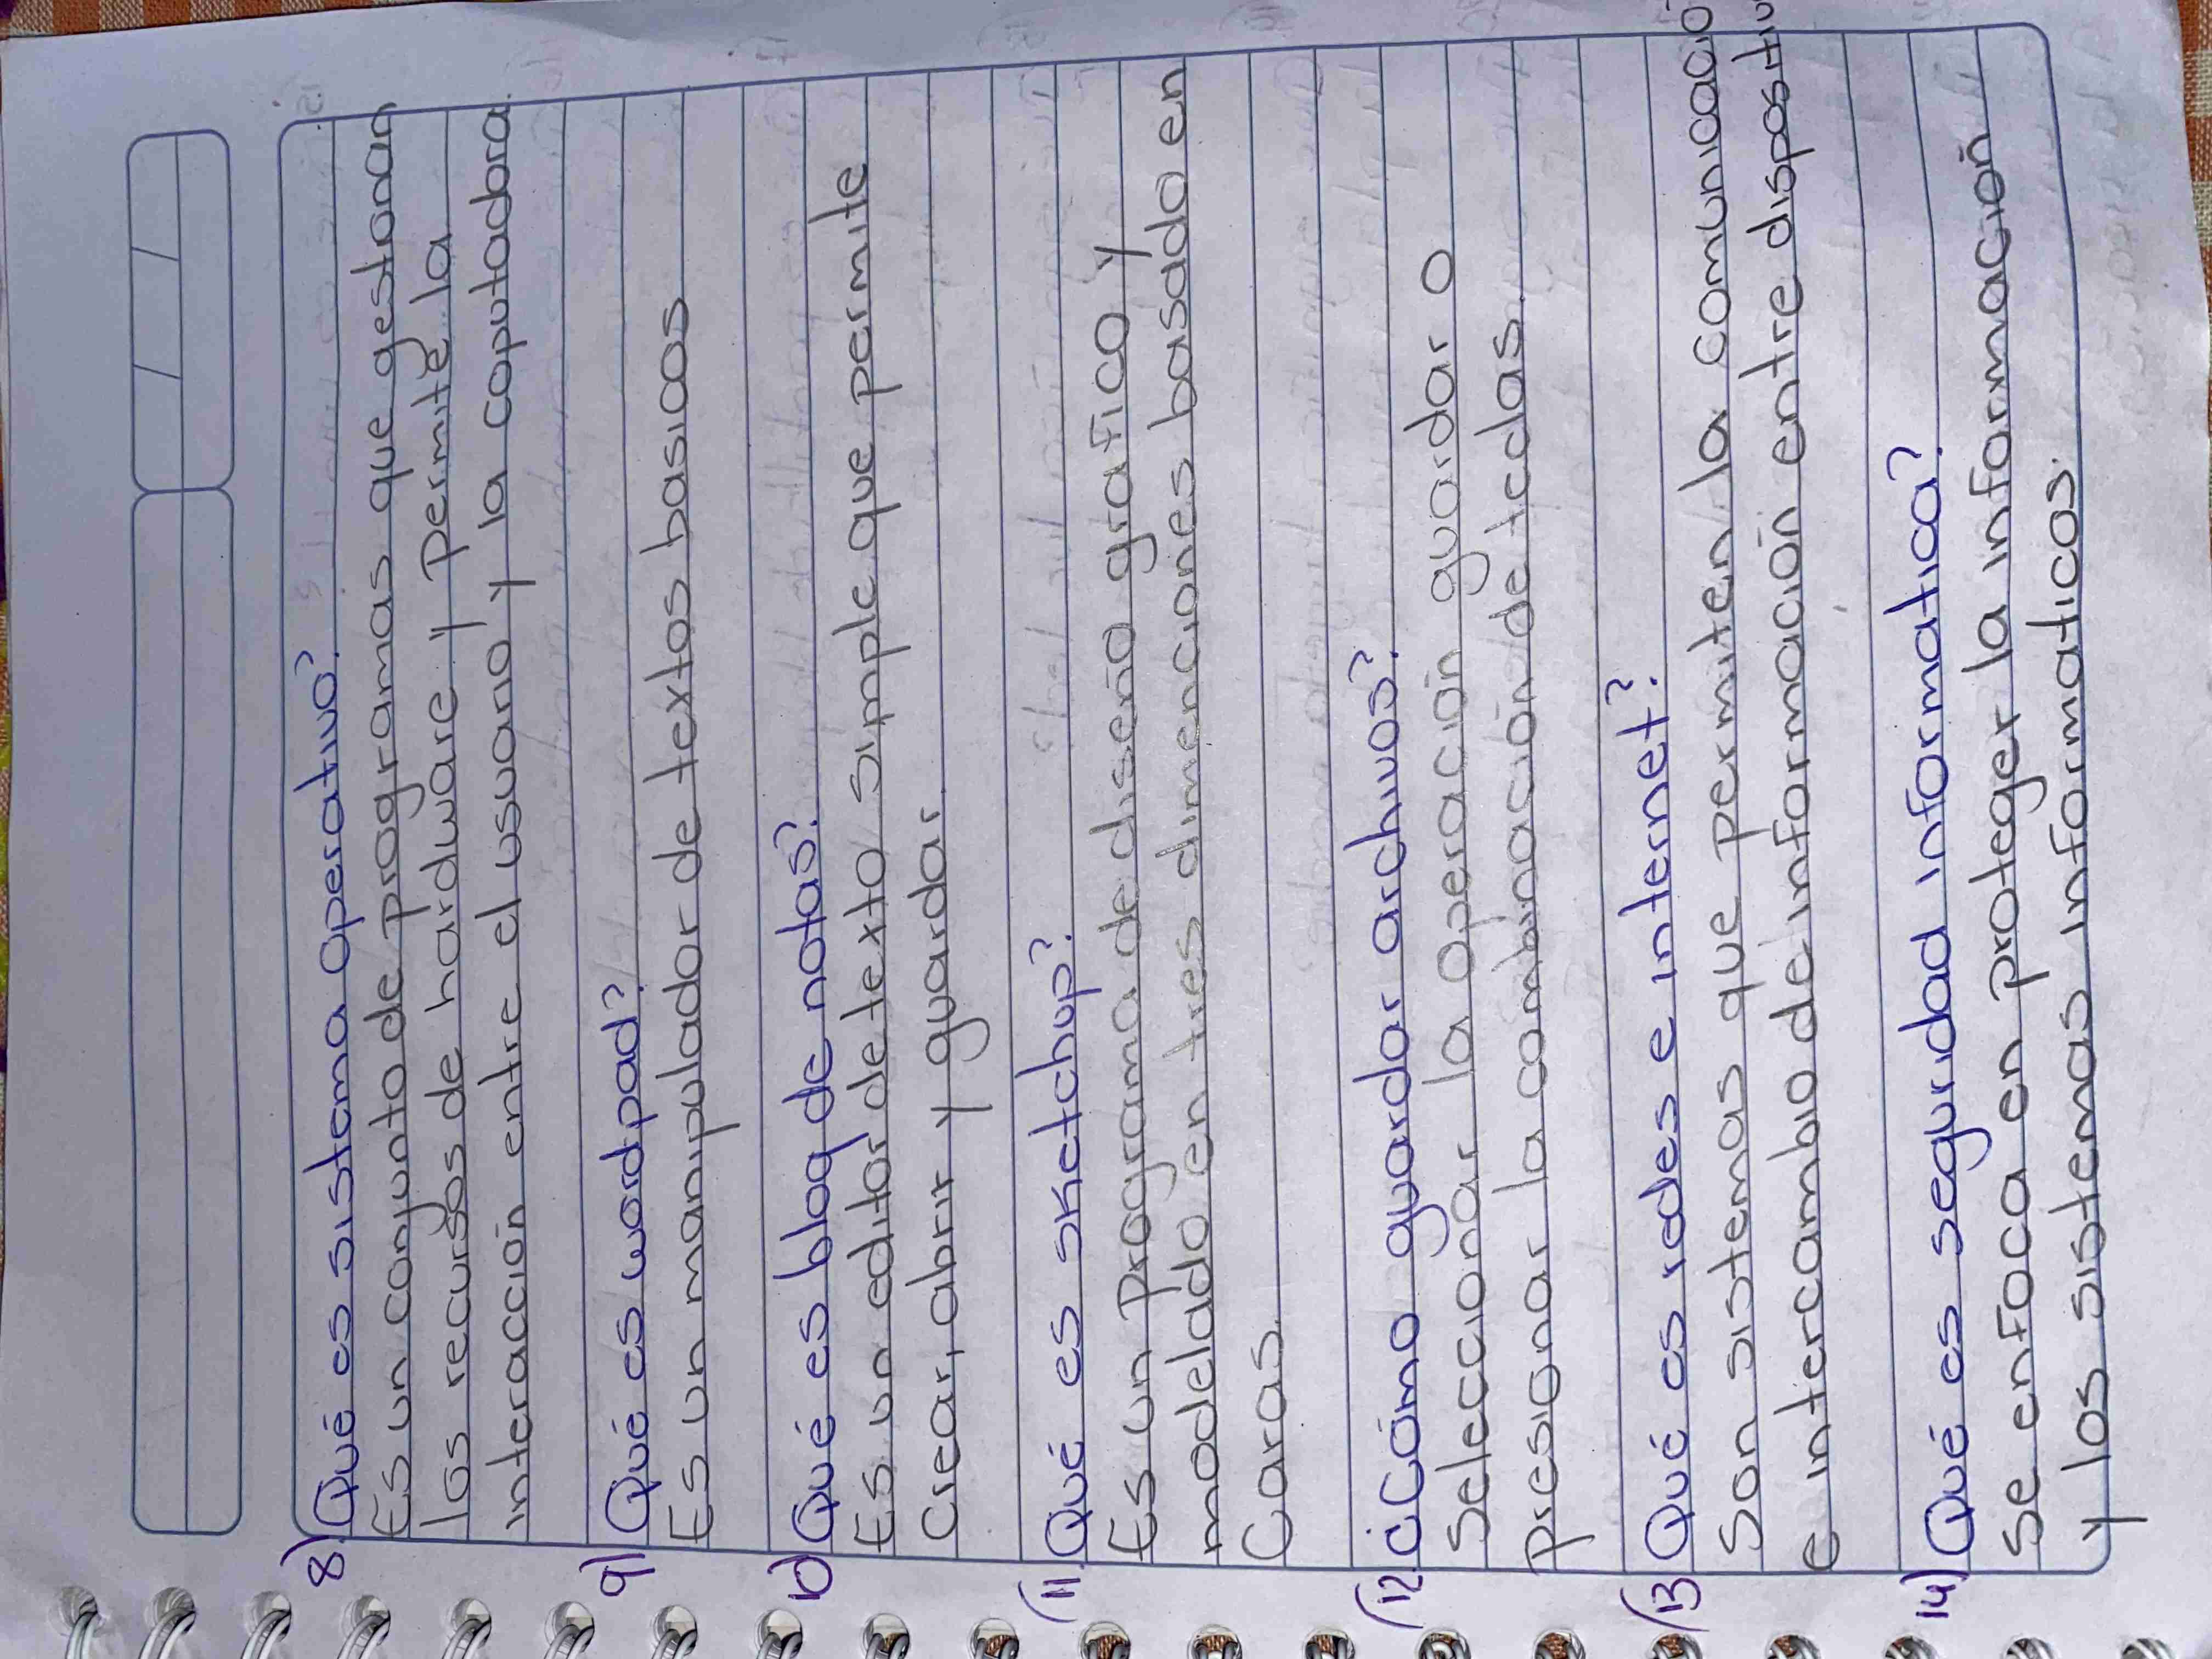 8) Qué es sistema operativo?
Es un conjunto de programas que gestionan
los recursos de hardware y permite la
interacción entre el usuario y la coputadora.
9) Qué es wordpad?
Es un manipulador de textos basicos
10) Qué es bloq de notas?
Es un editor de texto simple que permite
Crear, abrir y guardar.
11) Qué es sketchup?
Es un programa de diseño grafico y
modelado en tres dimenciones basado en
Caras.
12) ¿Cómo guardar archivos?
Seleccionar la operación guardar o
presionar la combinación de teclas.
13) Qué es redes e internet?
Son sistemas que permiten la comunicació
e intercambio de información entre dispositiv
14) Qué es seguridad informatica?
Se enfoca en proteger la información
y los sistemas informaticos.